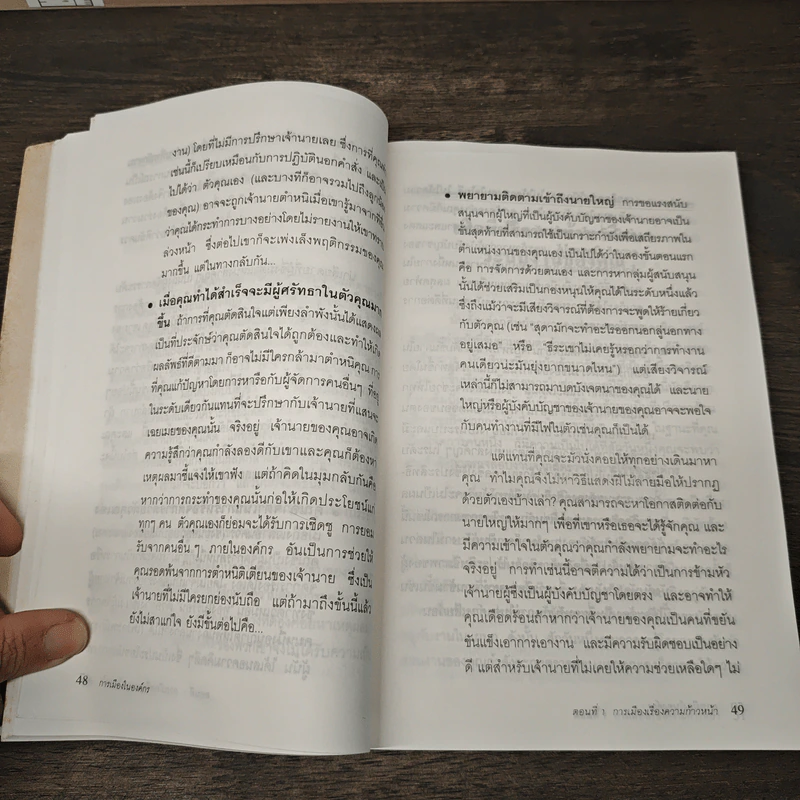 งาน) โดยที่ไม่มีการปรึกษาเจ้านายเลย ซึ่งการที่คุณ
เช่นนี้ก็เปรียบเหมือนกับการปฏิบัตินอกคำสั่ง และ
ไปได้ว่า ตัวคุณเอง (และบางทีก็อาจรวมไปถึง
ของคุณ) อาจจะถูกเจ้านายตำหนิเมื่อเขารู้มาจาก
ว่าคุณได้กระทำการบางอย่างโดยไม่รายงานให้เขาทราบ
ล่วงหน้า ซึ่งต่อไปเขาก็จะเพ่งเล็งพฤติกรรมของคุณ
มากขึ้น แต่ในทางกลับกัน...
• เมื่อคุณทำได้สำเร็จจะมีผู้ศรัทธาในตัวคุณมาก
ขึ้น ถ้าการที่คุณตัดสินใจแต่เพียงลำพังนั้นได้
เป็นที่ประจักษ์ว่าคุณตัดสินใจได้ถูกต้องและทำให้
ผลลัพธ์ที่ดีตามมา ก็อาจไม่มีใครกล้ามาตำหนิคุณ การ
ที่คุณแก้ปัญหาโดยการหารือกับผู้จัดการคนอื่นๆ ที่
ในระดับเดียวกันแทนที่จะปรึกษากับเจ้านายที่แสนจะ
เฉยเมยของคุณนั้น จริงอยู่ เจ้านายของคุณอาจเกิด
ความรู้สึกว่าคุณกำลังลองดีกับเขาและคุณก็ต้องหา
เหตุผลมาชี้แจงให้เขาฟัง แต่ถ้าคิดในมุมกลับกันคือ
หากว่าการกระทำของคุณนั้นก่อให้เกิดประโยชน์แก่
ทุกๆ คน ตัวคุณเองก็ย่อมจะได้รับการเชิดชู การยอม
รับจากคนอื่น ๆ ภายในองค์กร อันเป็นการช่วยให้
คุณรอดพ้นจากการตำหนิติเตียนของเจ้านาย ซึ่งเป็น
เจ้านายที่ไม่มีใครยกย่องนับถือ แต่ถ้ามาถึงขั้นนี้แล้ว
ยังไม่สาแก่ใจ ยังมีขั้นต่อไปคือ...
48 การเมืองในองค์กร
• พยายามติดตามเข้าถึงนายใหญ่ การขอแรงสนับ
สนุนจากผู้ใหญ่ที่เป็นผู้บังคับบัญชาของเจ้านายอาจเป็น
ขั้นสุดท้ายที่สามารถใช้เป็นเกราะกำบังเพื่อเสถียรภาพใน
ตำแหน่งงานของคุณเอง เป็นไปได้ว่าในสองขั้นตอนแรก
คือ การจัดการด้วยตนเอง และการหากลุ่มผู้สนับสนุน
นั้นได้ช่วยเสริมเป็นกองหนุนให้คุณได้ในระดับหนึ่งแล้ว
ซึ่งถึงแม้ว่าจะมีเสียงวิจารณ์ที่ต้องการจะพูดให้ร้ายเกี่ยว
กับตัวคุณ (เช่น “สุดามักจะทำอะไรออกนอกลู่นอกทาง
อยู่เสมอ” หรือ “ธีระเขาไม่เคยรู้หรอกว่าการทำงาน
คนเดียวน่ะมันยุ่งยากขนาดไหน”) แต่เสียงวิจารณ์
เหล่านี้ก็ไม่สามารถมาบดบังเจตนาของคุณได้ และนาย
ใหญ่หรือผู้บังคับบัญชาของเจ้านายของคุณอาจจะพอใจ
กับคนทำงานที่มีไฟในตัวเช่นคุณก็เป็นได้
แต่แทนที่คุณจะมัวนั่งคอยให้ทุกอย่างเดินมาหา
คุณ ทำไมคุณจึงไม่หาวิธีแสดงฝีไม้ลายมือให้ปรากฏ
ด้วยตัวเองบ้างเล่า? คุณสามารถจะหาโอกาสติดต่อกับ
นายใหญ่ให้มากๆ เพื่อที่เขาหรือเธอจะได้รู้จักคุณ และ
มีความเข้าใจในตัวคุณว่าคุณกำลังพยายามจะทำอะไร
จริงอยู่ การทำเช่นนี้อาจตีความได้ว่าเป็นการข้ามหัว
เจ้านายผู้ซึ่งเป็นผู้บังคับบัญชาโดยตรง และอาจทำให้
คุณเดือดร้อนถ้าหากว่าเจ้านายของคุณเป็นคนที่ขยัน
ขันแข็งเอาการเอางาน และมีความรับผิดชอบเป็นอย่าง
ดี แต่สำหรับเจ้านายที่ไม่เคยให้ความช่วยเหลือใดๆ ไม่
ตอนที่ 1 การเมืองเรื่องความก้าวหน้า 49